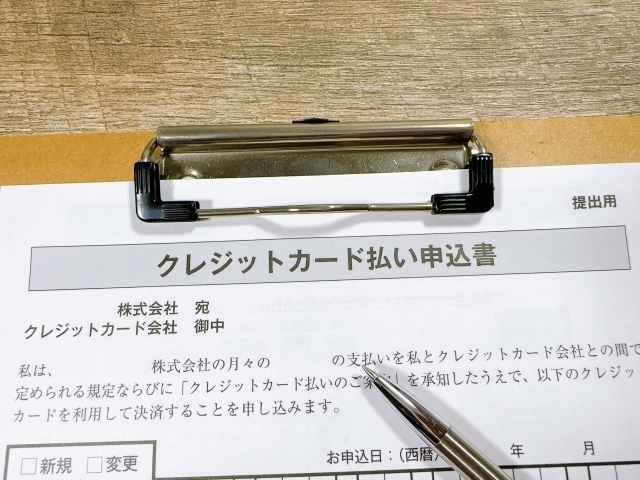 提出用
クレジットカード払い申込書
株式会社 宛
クレジットカード会社 御中
私は、 株式会社の月々の の支払いを私とクレジットカード会社との間で
定められる規定ならびに「クレジットカード払いのご案 」を承知したうえで、以下のクレジッ
カードを利用して決済することを申し込みます。
お申込日：（西暦） 年 月
□新規 □変更